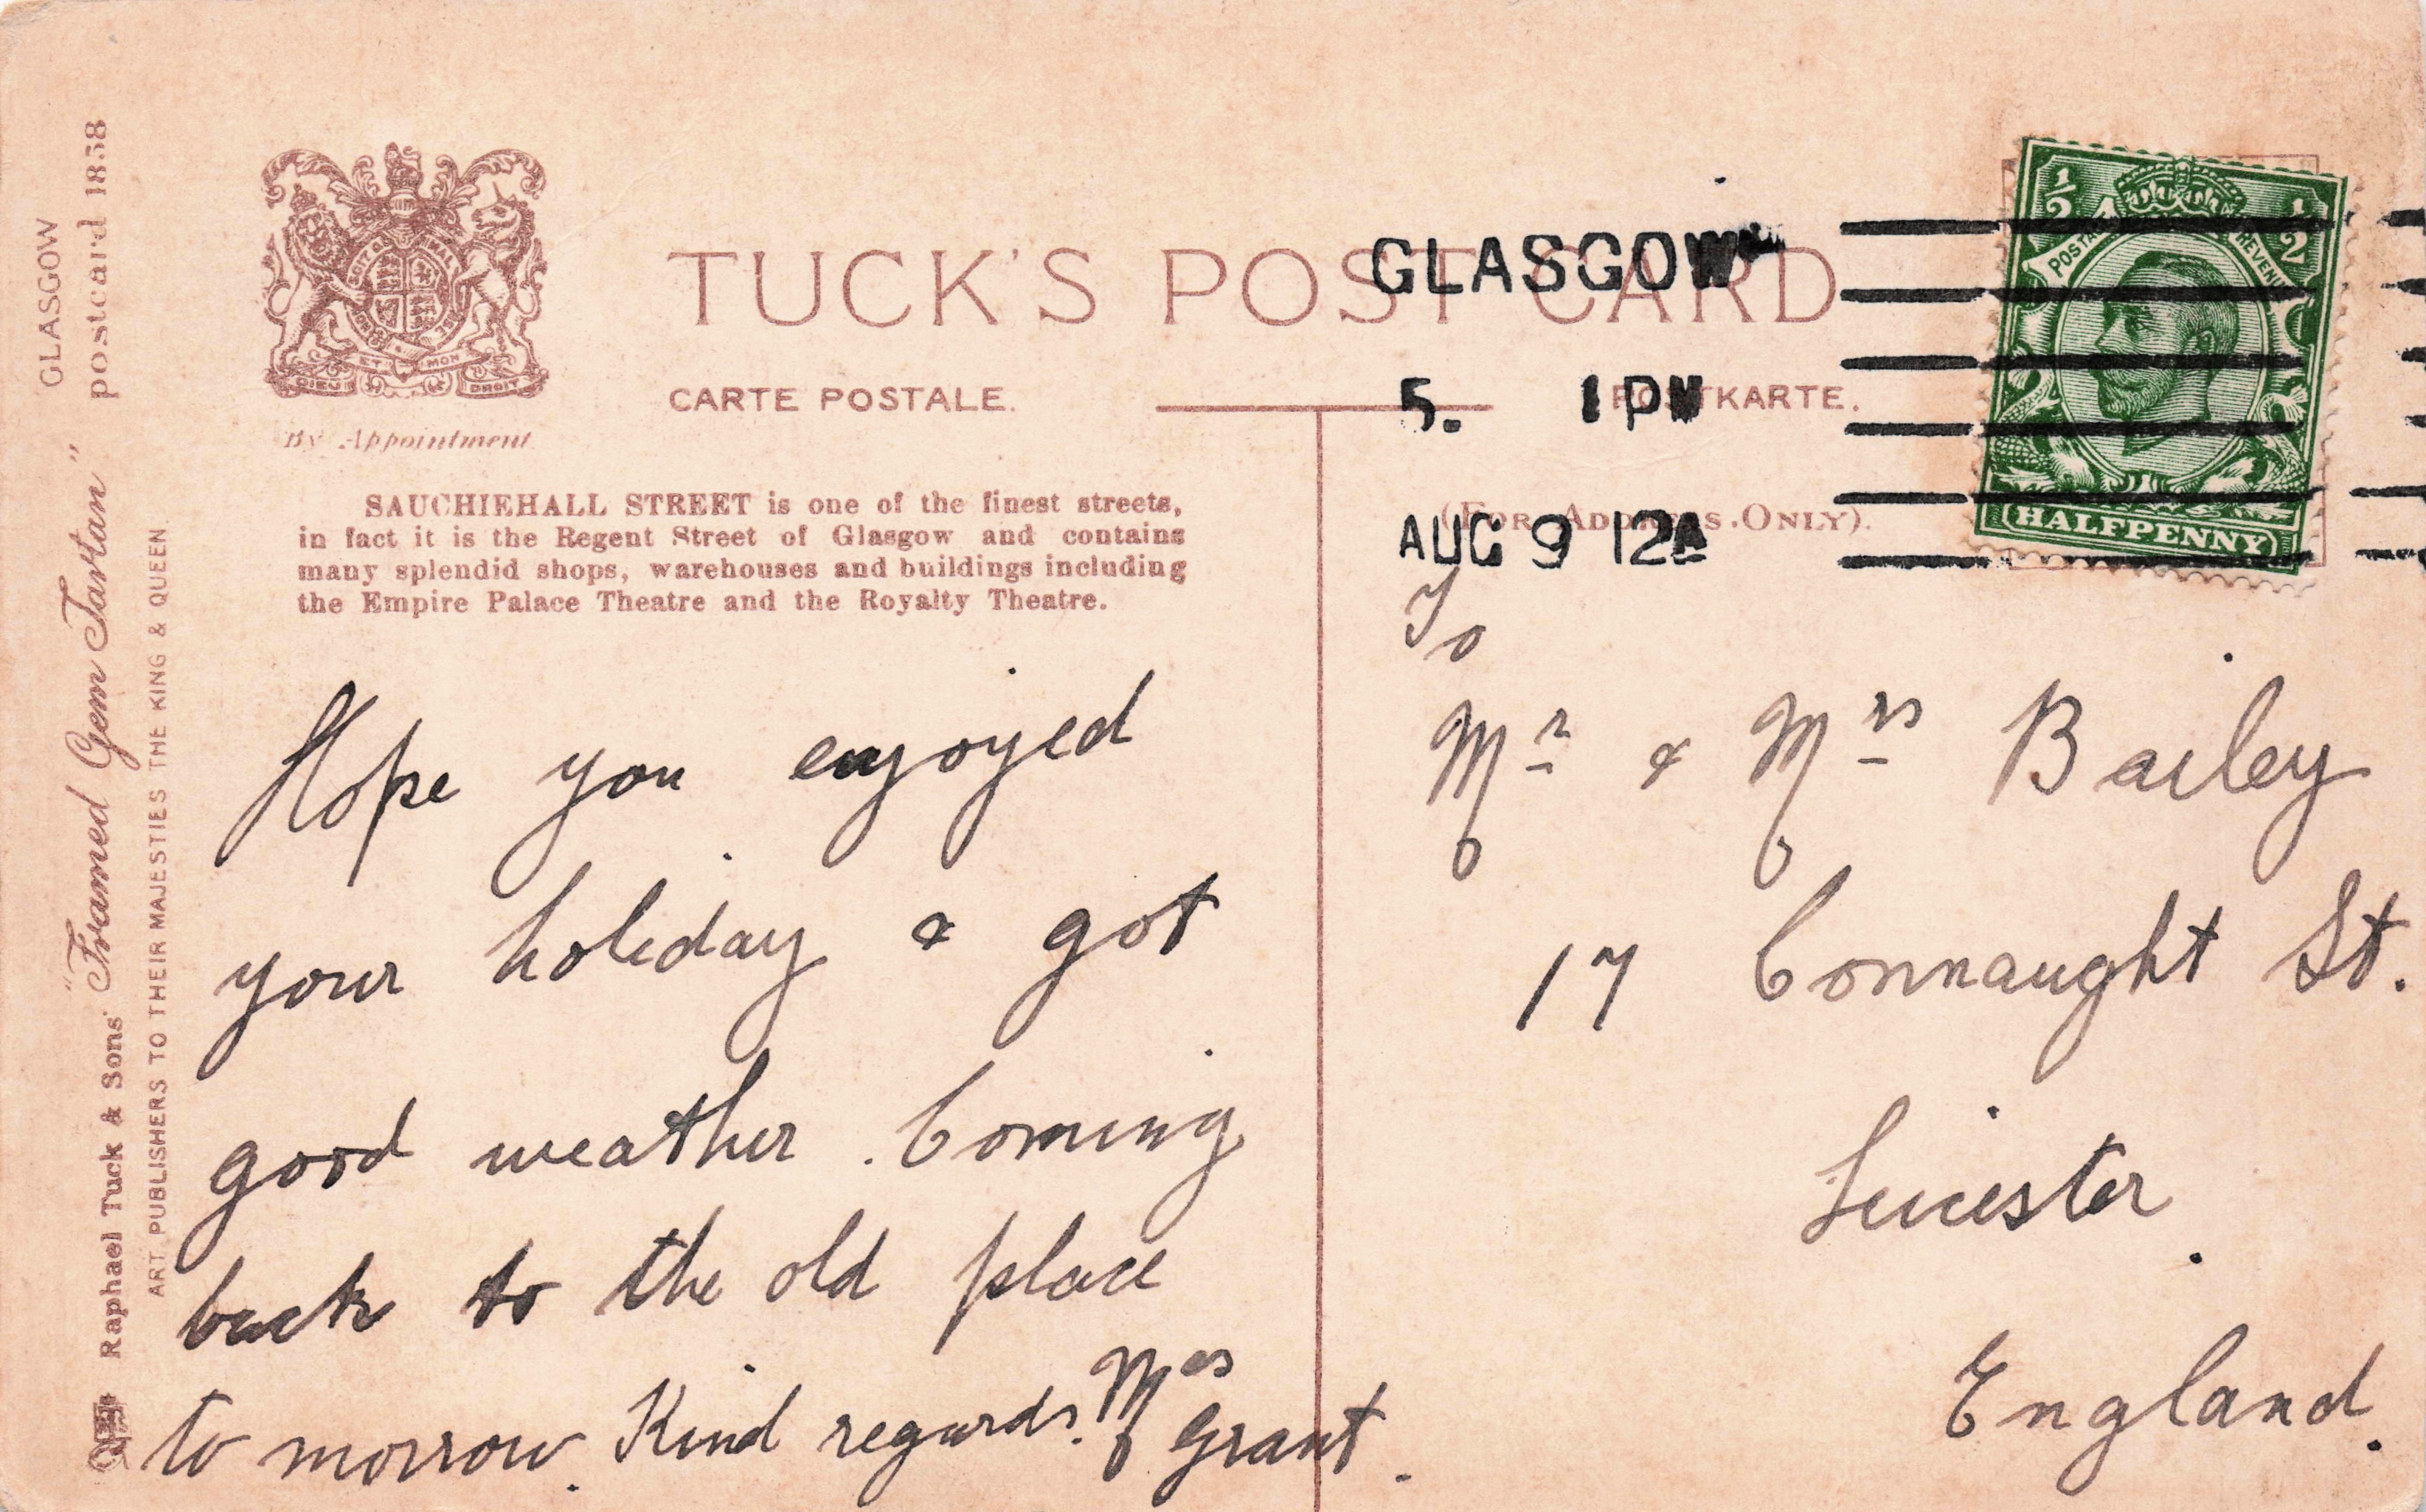 GLASGOW
postcard 1858
Raphael Tuck & Sons' "Framed Gem Tartan"
ART PUBLISHERS TO THEIR MAJESTIES THE KING & QUEEN
DIEU ET MON DROIT
By Appointment
TUCK'S POST CARD
CARTE POSTALE.
POSTKARTE.
(FOR ADDRESS ONLY).
SAUCHIEHALL STREET is one of the finest streets,
in fact it is the Regent Street of Glasgow and contains
many splendid shops, warehouses and buildings including
the Empire Palace Theatre and the Royalty Theatre.
Hope you enjoyed
your holiday & got
good weather. Coming
back to the old place
to morrow. Kind regards. Mrs Grant.
GLASGOW
5. 1 PM
AUG 9 12A
POSTAGE REVENUE
1/2 1/2
HALFPENNY
To
Mr & Mrs Bailey
17 Connaught St.
Leicester.
England.